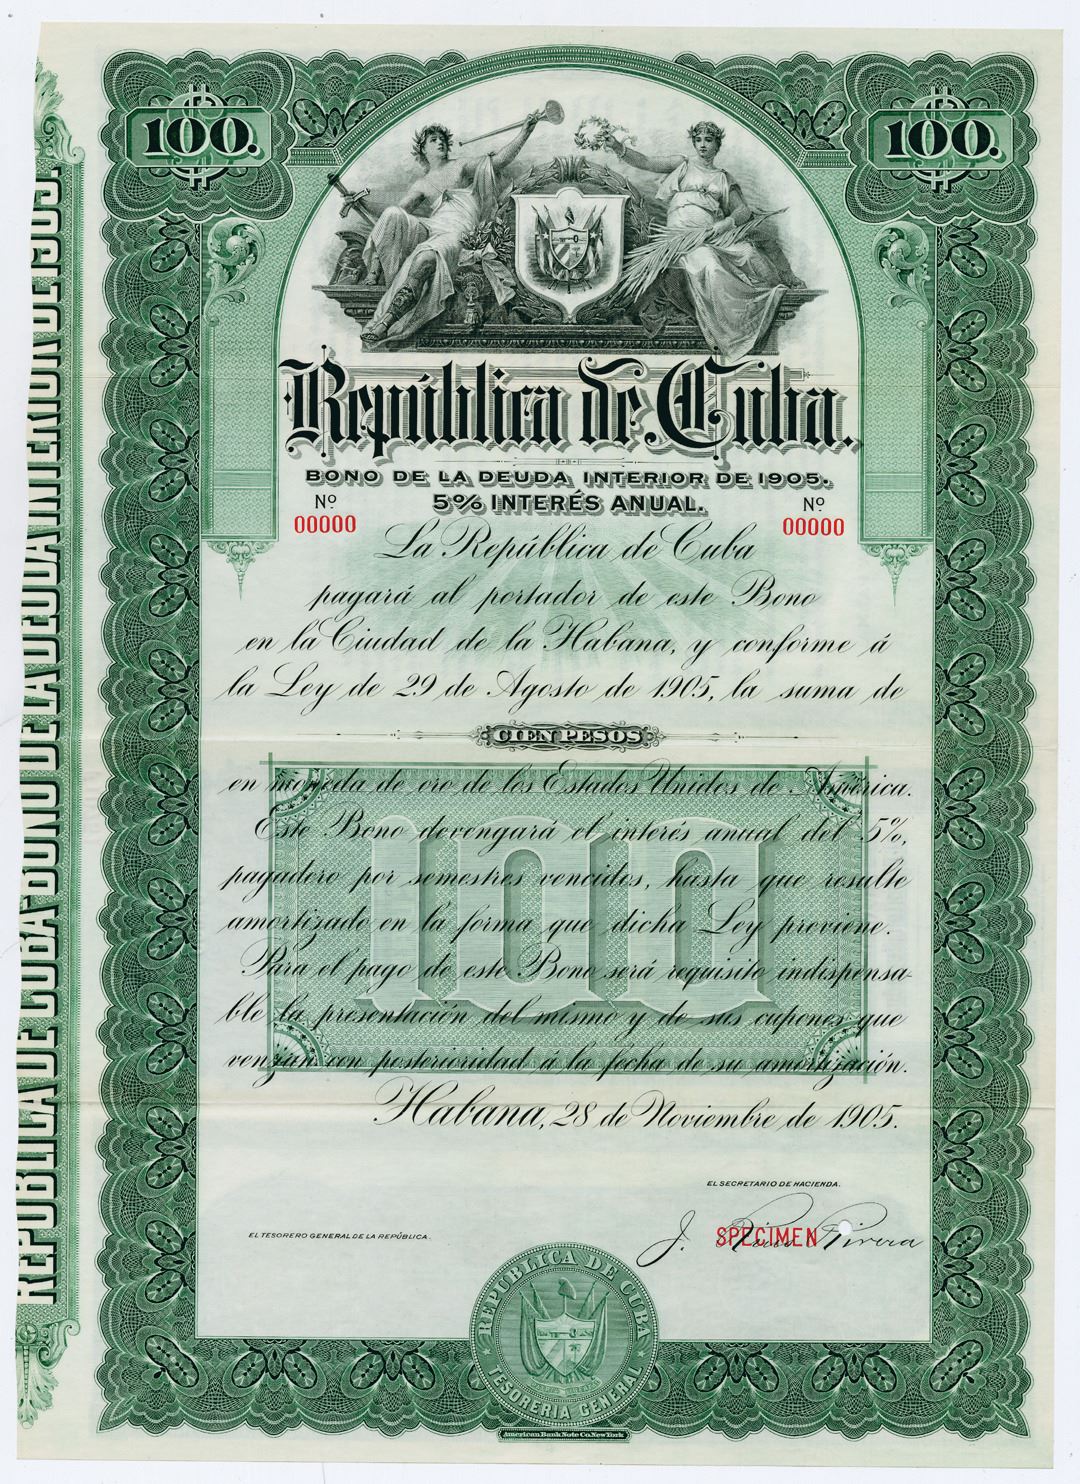 REPÚBLICA DE CUBA-BONO DE LA DEUDA INTERIOR DE 1905.
100. 100.
República de Cuba.
BONO DE LA DEUDA INTERIOR DE 1905.
5% INTERÉS ANUAL.
Nº 00000 Nº 00000
La República de Cuba
pagará al portador de este Bono
en la Ciudad de la Habana, y conforme á
la Ley de 29 de Agosto de 1905, la suma de
CIEN PESOS
en moneda de oro de los Estados Unidos de América.
Este Bono devengará el interés anual del 5%,
pagadero por semestres vencidos, hasta que resulte
amortizado en la forma que dicha Ley previene.
Para el pago de este Bono será requisito indispensa-
ble la presentación del mismo y de sus cupones que
venzan con posterioridad á la fecha de su amortización.
100
Habana, 28 de Noviembre de 1905.
EL SECRETARIO DE HACIENDA.
EL TESORERO GENERAL DE LA REPÚBLICA.
J. Rius Rivera
SPECIMEN
REPUBLICA DE CUBA
TESORERIA GENERAL
American Bank Note Co. New York